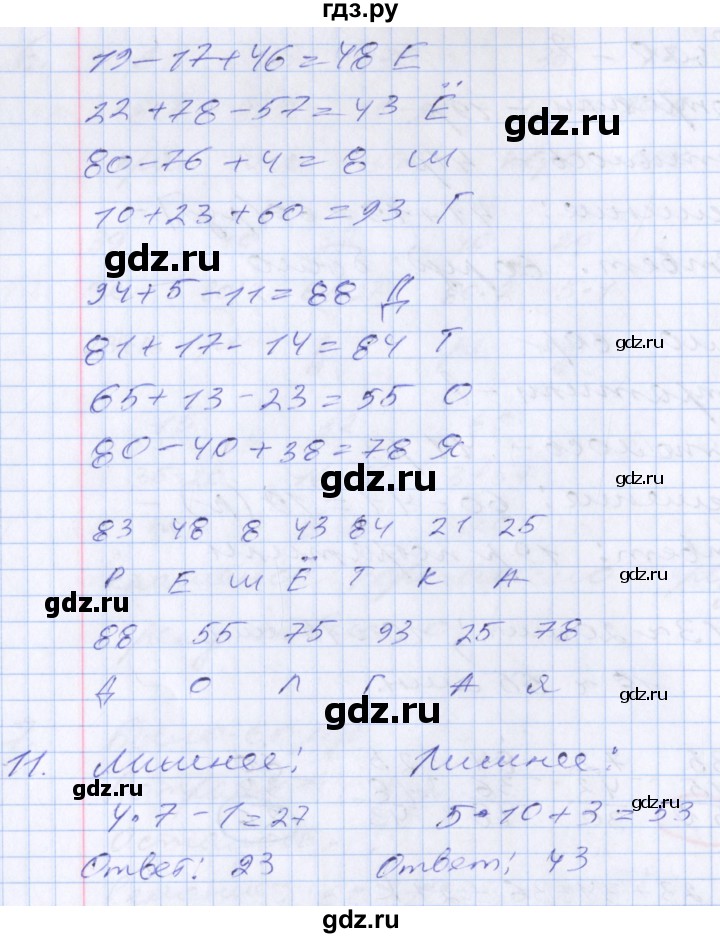 гдз.ру
19-17+46=48 Е
22+78-57=43 Ё
gdz.ru
80-76+4=8 Ш
10+23+60=93 Г
gdz.ru
94+5-11=88 Д
81+17-14=84 Т
gdz.ru
65+13-23=55 О
80-40+38=78 Я
gdz.ru
gdz.ru
83 48 8 43 84 21 25
Р Е Ш Ё Т К А
gdz.ru
gdz.ru
88 55 75 93 25 78
Д О Л Г А Я
gdz.ru
gdz.ru
11. Лишнее: Лишнее:
gdz.ru
4·7-1=27 5·10+3=53
gdz.ru
Ответ: 23 Ответ: 43
gdz.ru